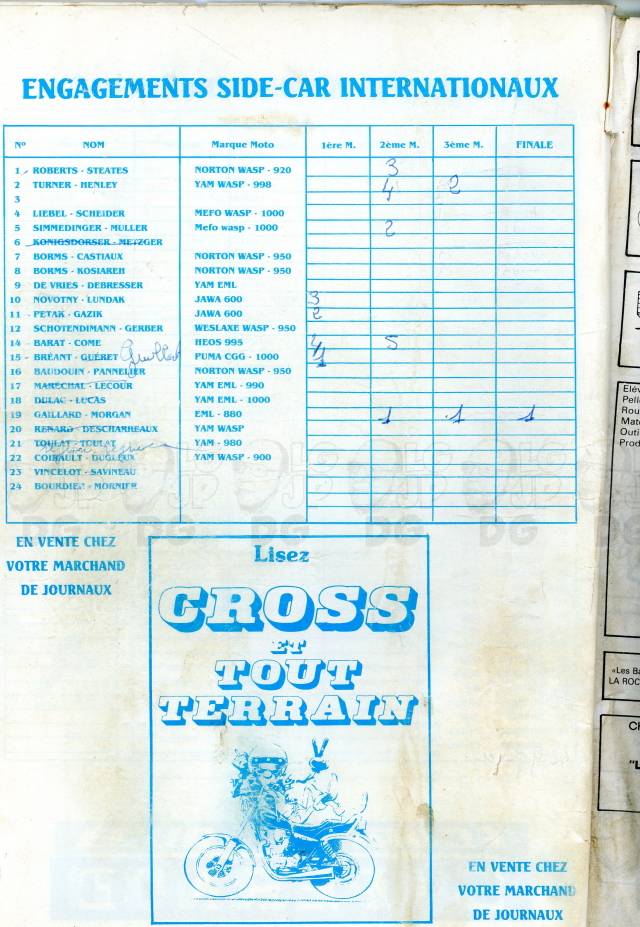 ENGAGEMENTS SIDE-CAR INTERNATIONAUX
N° NOM Marque Moto 1ère M. 2ème M. 3ème M. FINALE
1 ROBERTS - STEATES NORTON WASP - 920 3
2 TURNER - HENLEY YAM WASP - 998 4 2
3
4 LIEBEL - SCHEIDER MEFO WASP - 1000
5 SIMMEDINGER - MULLER Mefo wasp - 1000 2
6 KONIGSDORSER - METZGER
7 BORMS - CASTIAUX NORTON WASP - 950
8 BORMS - KOSIAREH NORTON WASP - 950
9 DE VRIES - DEBRESSER YAM EML
10 NOVOTNY - LUNDAK JAWA 600 3
11 PETAK - GAZIK JAWA 600 2
12 SCHOTENDIMANN - GERBER WESLAXE WASP - 950
14 BARAT - COME HEOS 995 4 5
15 BRÉANT - GUÉRET PUMA CGG - 1000 1
16 BAUDOUIN - PANNELIER NORTON WASP - 950
17 MARÉCHAL - LECOUR YAM EML - 990
18 DULAC - LUCAS YAM EML - 1000
19 GAILLARD - MORGAN EML - 880 1 1 1
20 RENARD - DESCHARREAUX YAM WASP
21 TOULAT - TOULAT YAM - 980
22 COIBAULT - DUGLEUX YAM WASP - 900
23 VINCELOT - SAVINEAU
24 BOURDIER - MORNIER
EN VENTE CHEZ
VOTRE MARCHAND
DE JOURNAUX
Lisez
CROSS
ET
TOUT
TERRAIN
EN VENTE CHEZ
VOTRE MARCHAND
DE JOURNAUX
Elév
Pelle
Rou
Maté
Outi
Prod
«Les Ba
LA ROC
CH
"L
DG DG DG DG DG